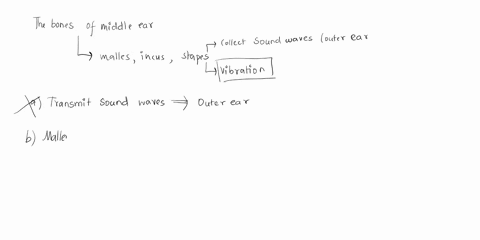 The bones of middle ear
malles, incus, stapes
collect sound waves (outer ear
Vibration
a) Transmit sound waves ⇒ Outer ear
b) Malle